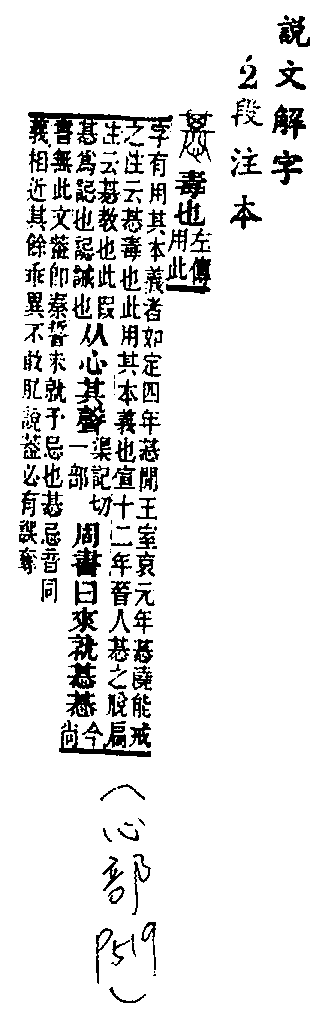 說文解字
2段注本
惎 毒也 左傳
用此
字有用其本義者如定四年惎閒王室哀元年惎澆能戒
之注云惎毒也此用其本義也宣十二年晉人惎之脫扃
注云惎教也此叚
惎爲誋也誋誡也
从心其聲 渠記切
一部
周書曰來就惎惎 今
尚
書無此文葢卽秦誓未就予忌也惎忌音同
義相近其餘乖異不敢肊說葢必有誤奪
(心部
P519)